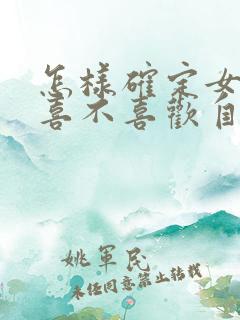 怎樣確定女
喜不喜歡自
姚軍民
未任同意禁止转载